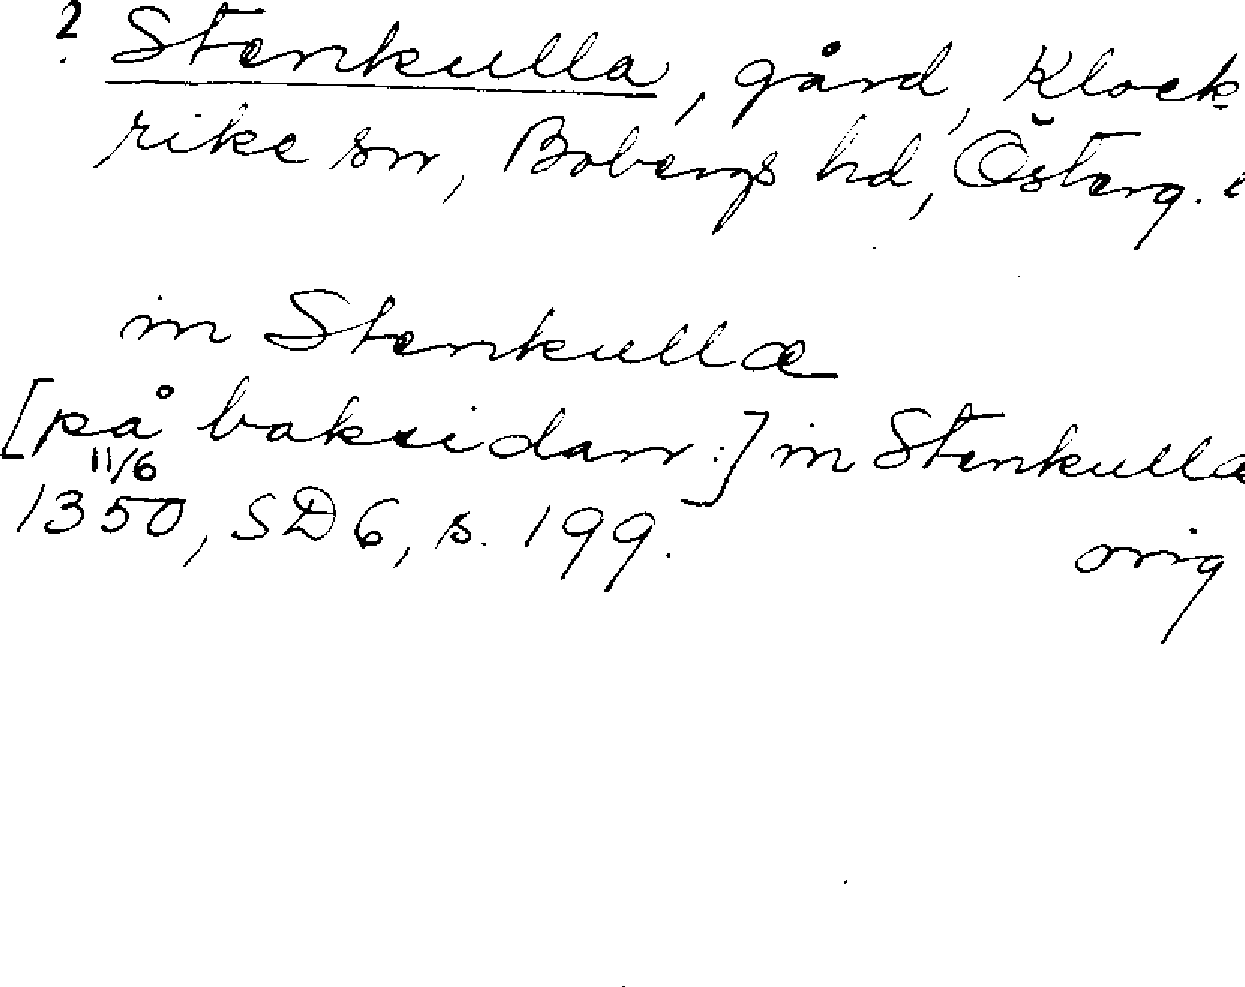 ? Stenkulla, gård, Klock-
rike sn, Bobergs hd, Österg.
in Stenkullæ
[på baksidan:] in Stenkullæ
11/6
1350, SD 6, s. 199.
orig